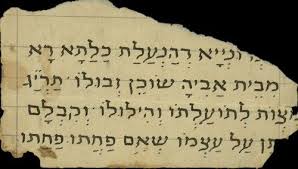 וּנְיָיא דְהַנְעָלַת כַלְתָא רָא
מִבֵית אַבִיהָ שוֹכֵן זְבוּלוֹ תַרְיַג
צְוֹת לְתוֹעַלְתוֹ וְהִילוּלוֹ וְקִבְלָם
תֵן עַל עַצְמוֹ שֶאִם פַחֲתוּ פַחֲתוּ